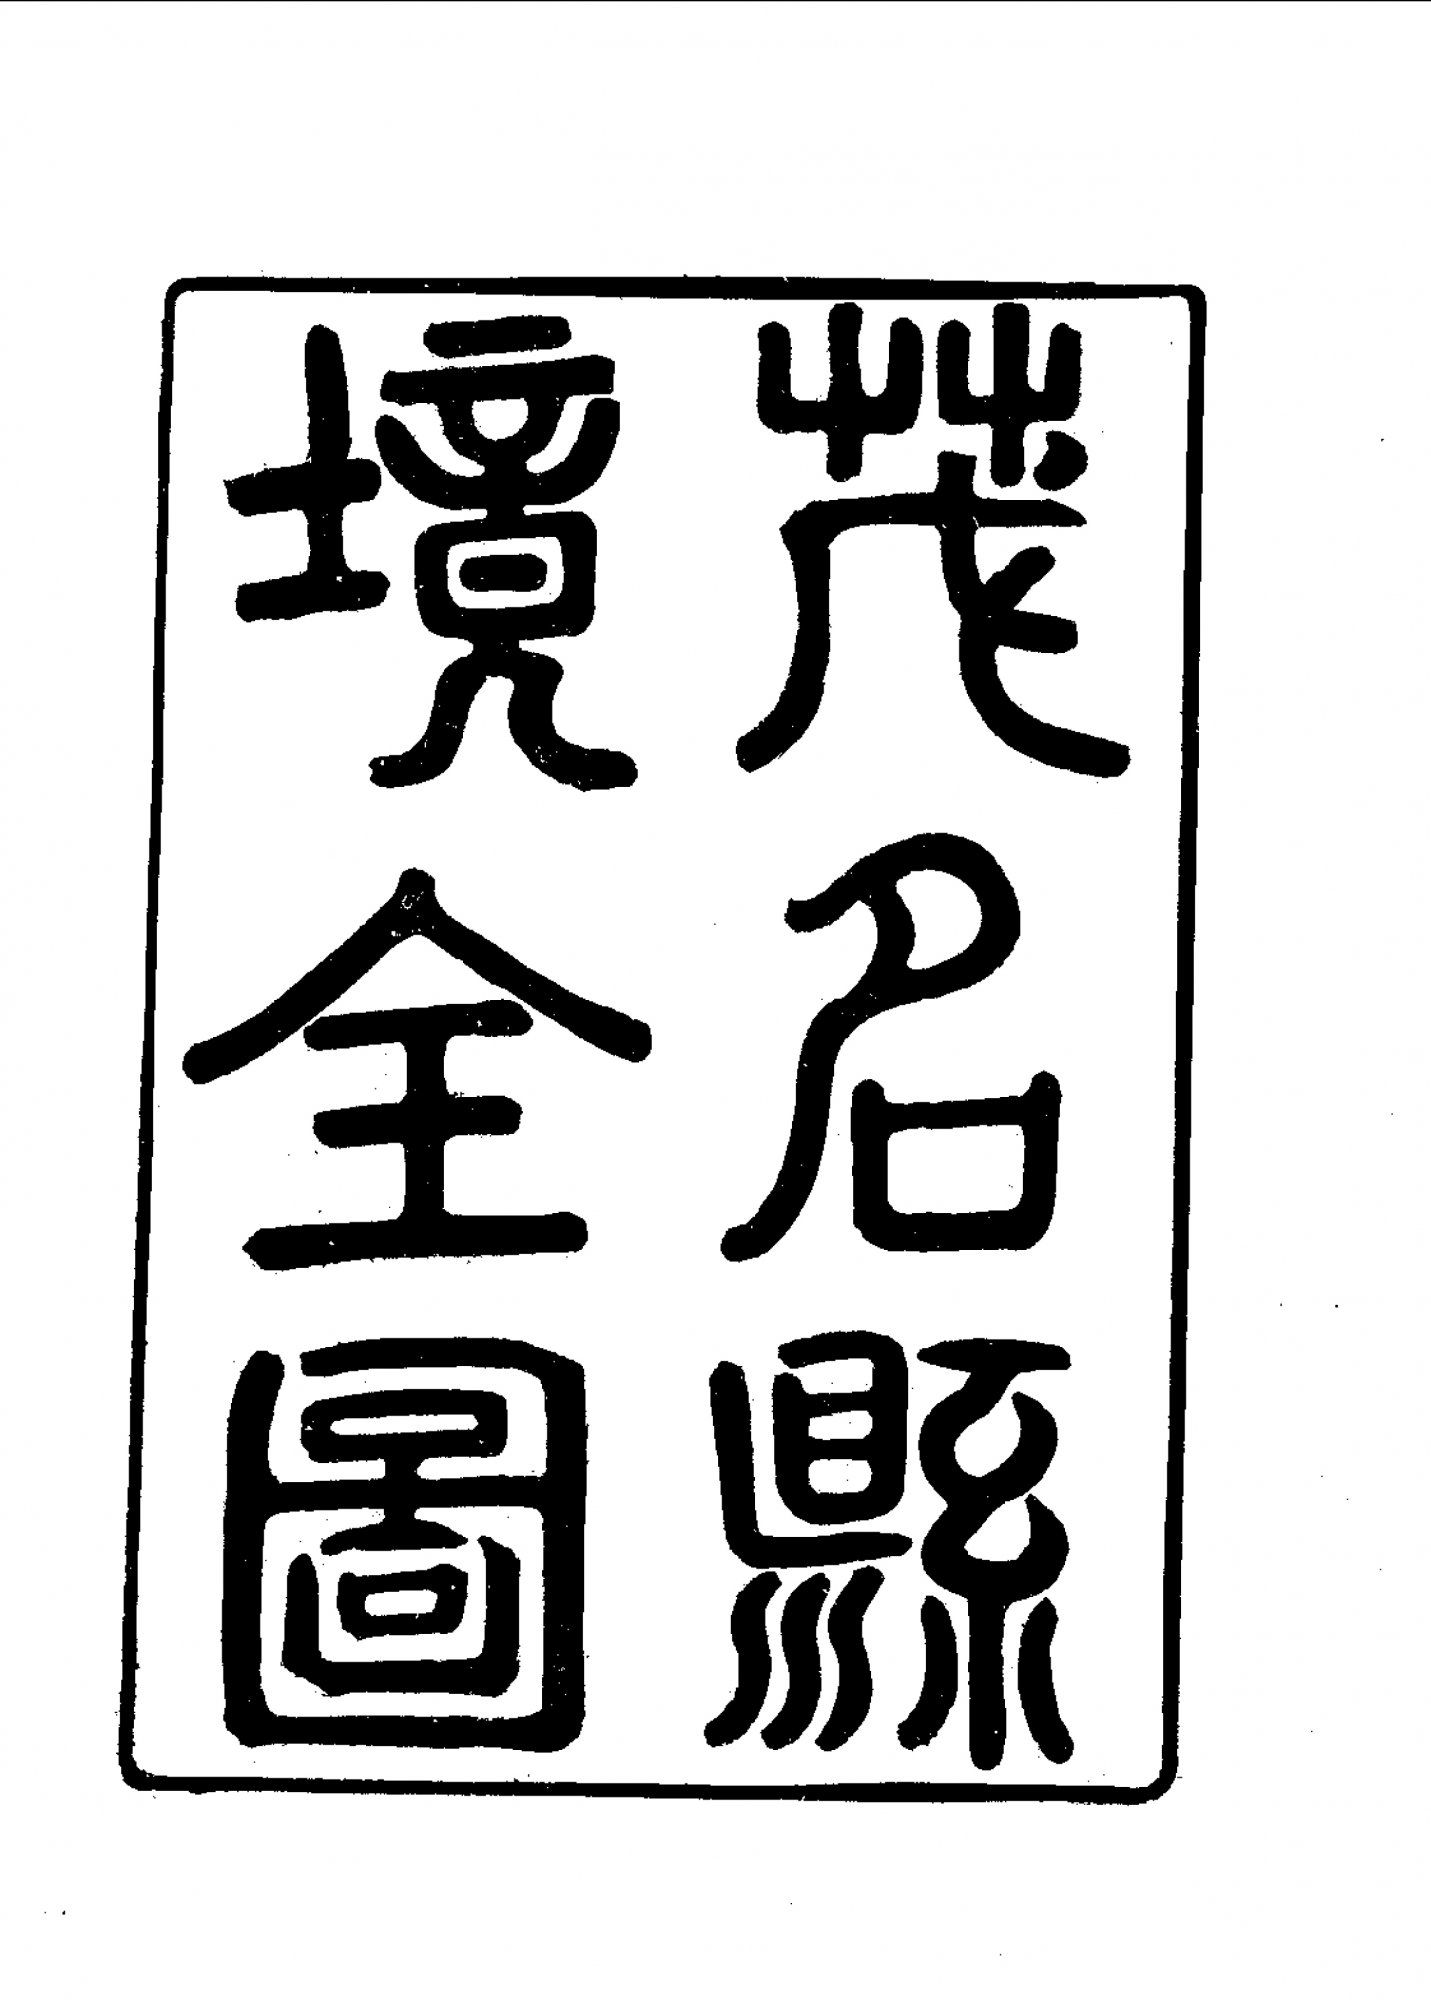 茂名縣
境全圖